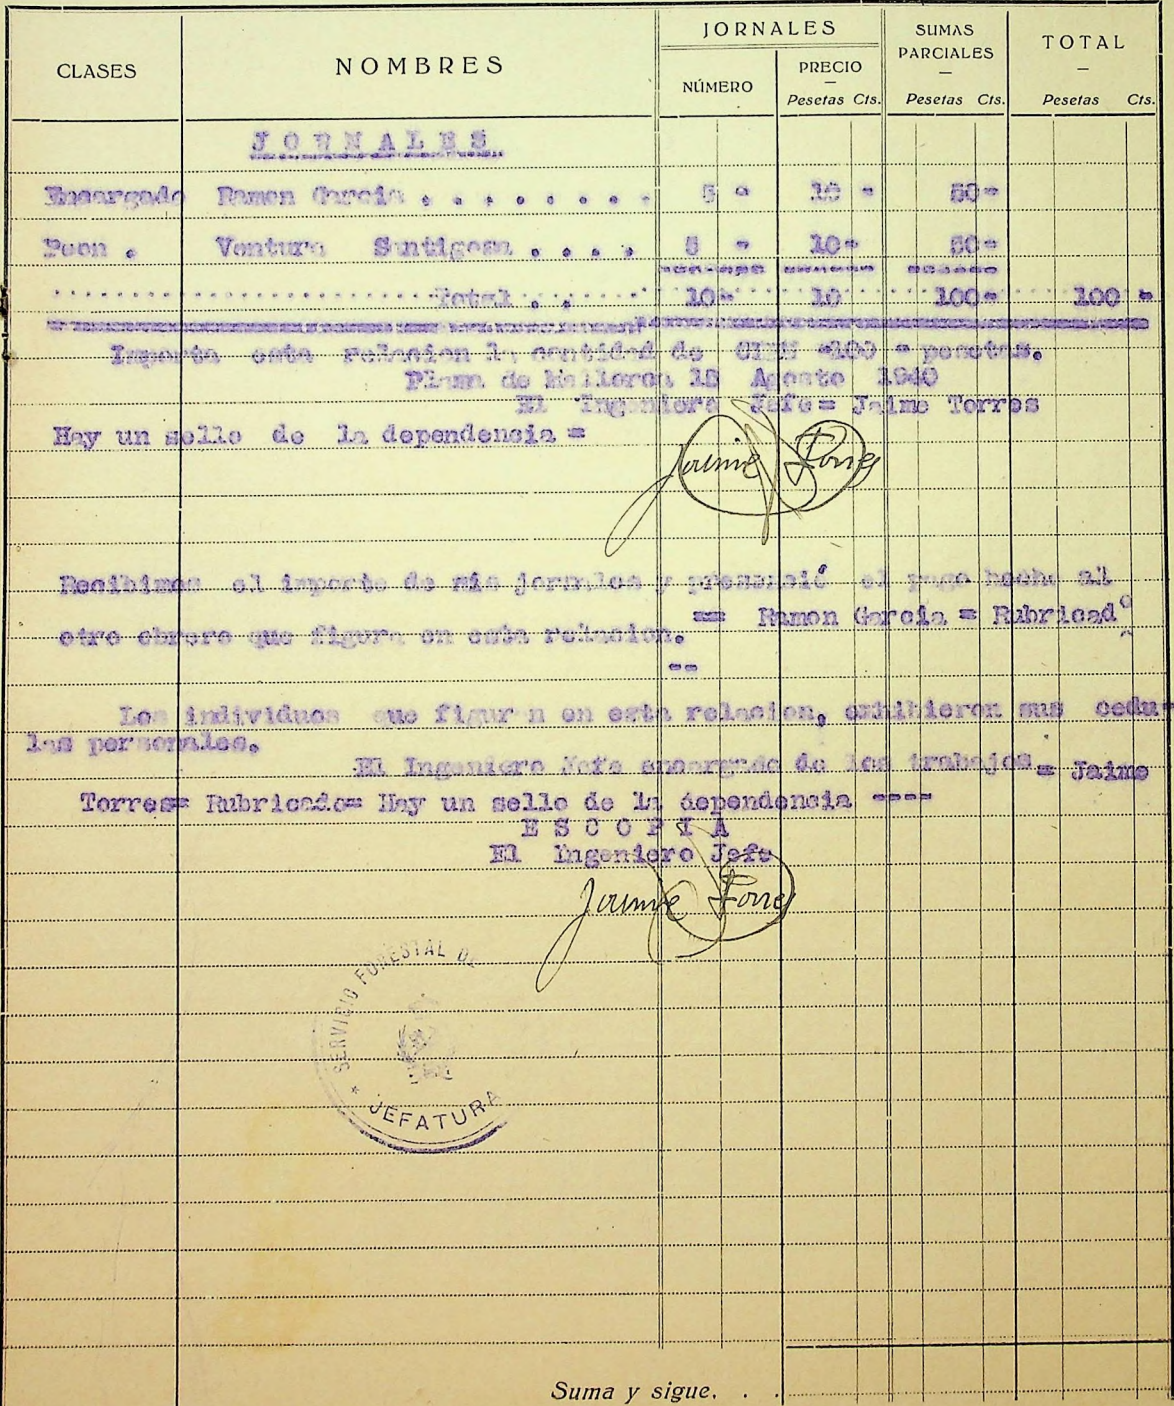 CLASES NOMBRES JORNALES SUMAS PARCIALES TOTAL
NÚMERO PRECIO
Pesetas Cts. Pesetas Cts. Pesetas Cts.
JORNALES
Encargado Ramon Garcia . . . . . . . . 5 - 10 - 50-
Peon . Ventura Santigosa . . . . 5 - 10- 50-
Total . . 10- 10 100- 100 -
Importa esta relacion la cantidad de CIEN -100 - pesetas.
de Mallorca Agosto 1940
El Ingeniero Jefe= Jaime Torres
Hay un sello de la dependencia =
Jaime Torres
Recibimos el importe de mis jornales y presenció el pago hecho al
== Ramon Garcia = Rubricado
otro obrero que figura en esta relacion.
--
Los individuos que figuran en esta relacion, exhibieron sus cedu-
las personales.
El Ingeniero Jefe encargado de los trabajos = Jaime
Torres= Rubricado= Hay un sello de la dependencia ----
ES COPIA
El Ingeniero Jefe
Jaime Torres
SERVICIO FORESTAL DE
* JEFATURA
Suma y sigue. . .